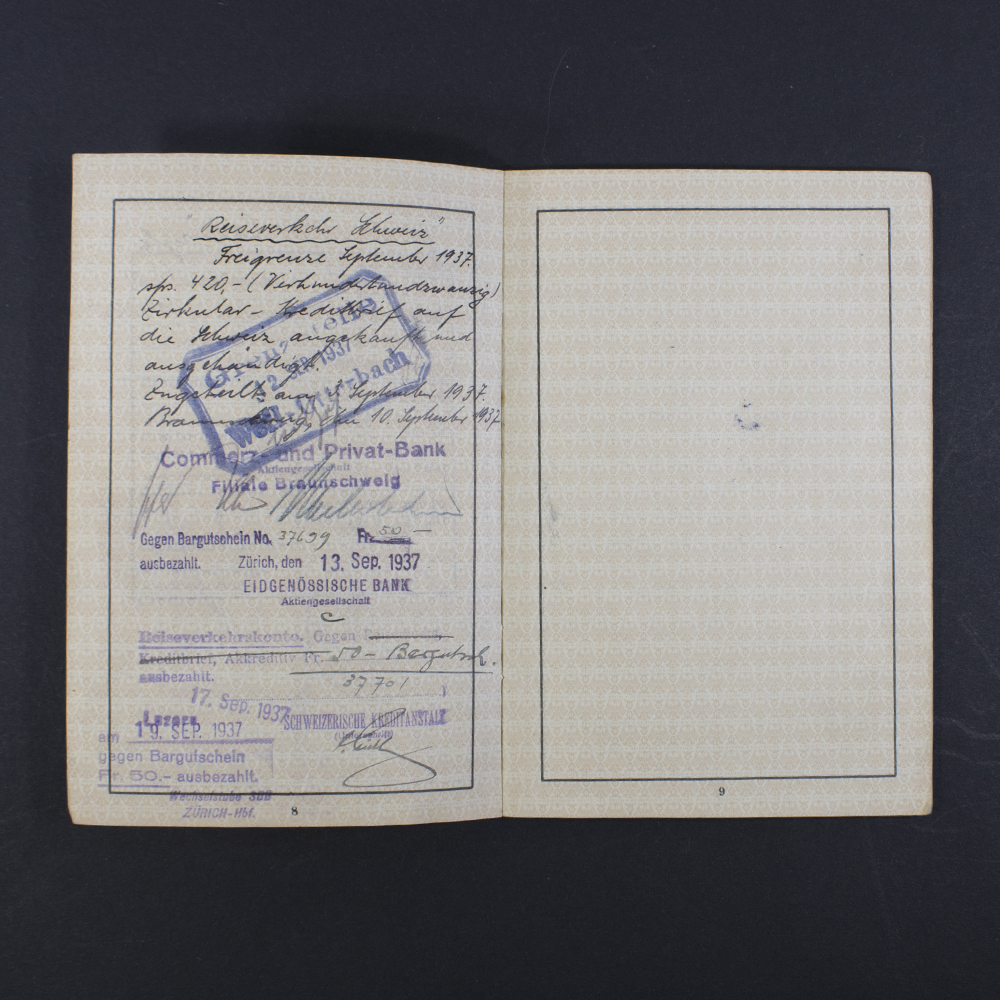 "Reiseverkehr Schweiz"
Freigrenze September 1937.
sfrs. 420,- (Vierhundertundzwanzig)
Zirkular-Kreditbrief auf
die Schweiz angekauft und
ausgehändigt.
Zugeteilt am September 1937.
Braunschweig, den 10. September 1937
Grenzstelle
12. Sep. 1937
Weil-Otterbach
Commerz- und Privat-Bank
Aktiengesellschaft
Filiale Braunschweig
Gegen Bargutschein No. 37699 Fr. 50 —
ausbezahlt. Zürich, den 13. Sep. 1937
EIDGENÖSSISCHE BANK
Aktiengesellschaft
Reiseverkehrskonto. Gegen
Kreditbrief, Akkreditiv Fr. 50 - Bargutsch.
ausbezahlt. 37701
17. Sep. 1937
Luzern
SCHWEIZERISCHE KREDITANSTALT
(Unterschrift)
am 19. SEP. 1937
gegen Bargutschein
Fr. 50.- ausbezahlt.
Wechselstube SBB
ZÜRICH-Hbf.
8
9